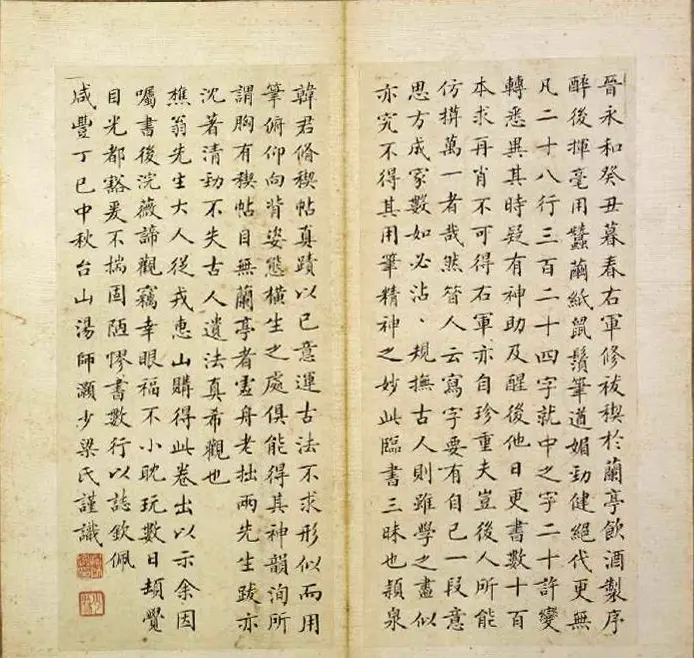 晉永和癸丑暮春右軍修祓禊於蘭亭飲酒製序
醉後揮毫用蠶繭紙鼠鬚筆遒媚勁健絕代更無
凡二十八行三百二十四字就中之字二十許變
轉悉異其時疑有神助及醒後他日更書數十百
本求再肖不可得右軍亦自珍重夫豈後人所能
仿撫萬一者哉然簪人云寫字要有自己一段意
思方成家數如必沾、規撫古人則雖學之盡似
亦究不得其用筆精神之妙此臨書三昧也穎泉
韓君脩禊帖真蹟以己意運古法不求形似而用
筆俯仰向背姿態橫生之處俱能得其神韻洵所
謂胸有禊帖目無蘭亭者虛舟老拙兩先生跋亦
沈著清勁不失古人遺法真希觀也
樵翁先生大人從戎惠山購得此卷出以示余因
囑書後浣薇諦觀竊幸眼福不小耽玩數日頓覺
目光都豁爰不揣固陋憀書數行以誌欽佩
咸豐丁巳中秋台山湯師灝少梁氏謹識